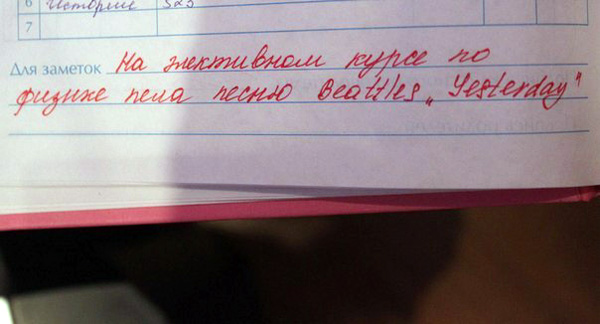 6 История 325
7
Для заметок На элективном курсе по
физике пела песню Beattles „Yesterday"